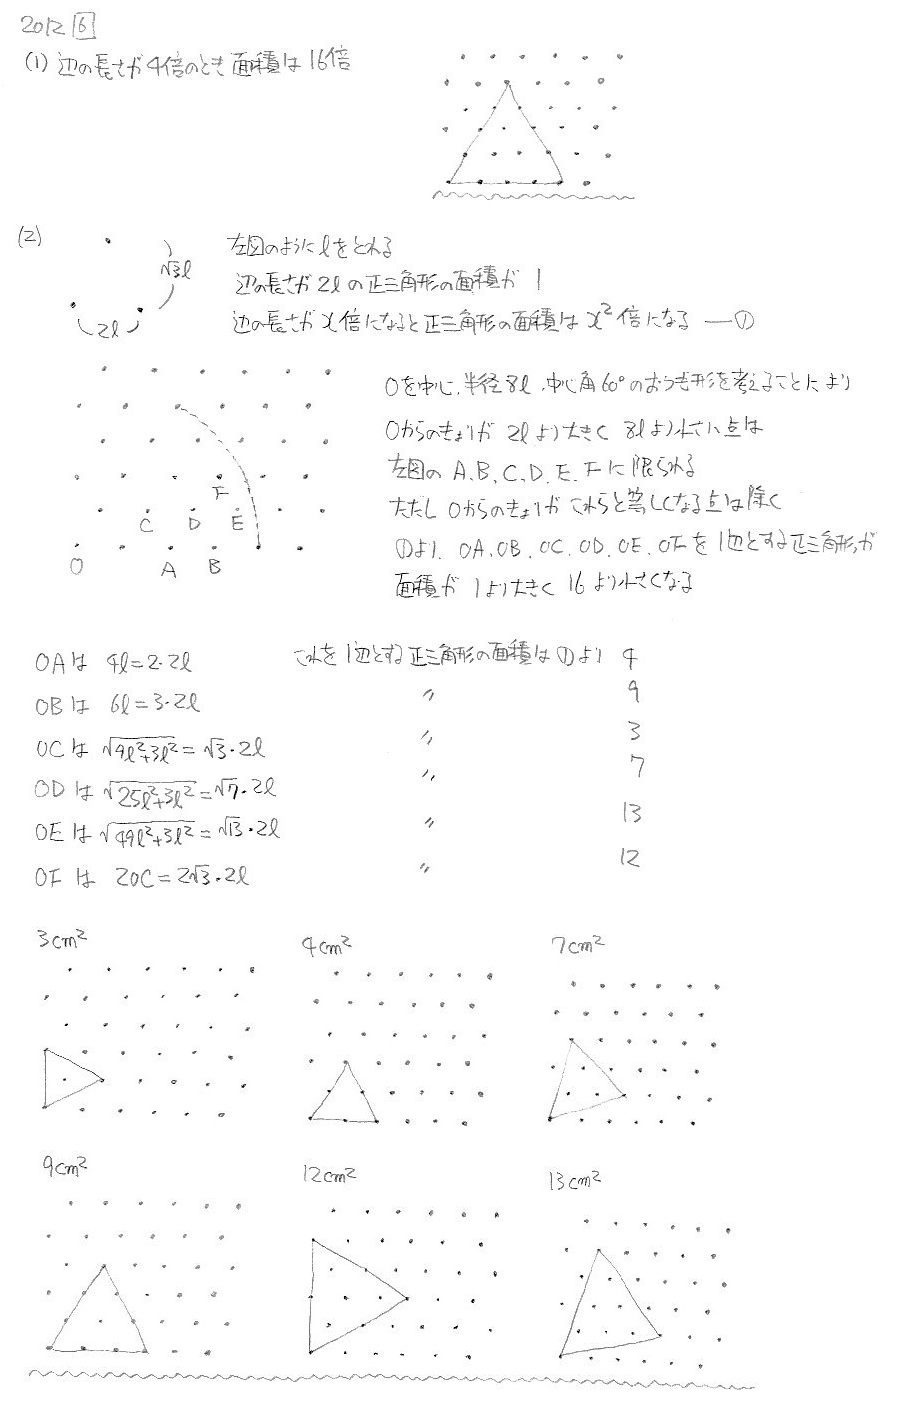 2012 6
(1) 辺の長さが4倍のとき面積は16倍
(2)
左図のようにlをとれる
√3l
辺の長さが2lの正三角形の面積が 1
2l
辺の長さがx倍になると正三角形の面積はx²倍になる ―①
Oを中心、半径8l、中心角60°のおうぎ形を考えることにより
Oからのきょりが 2lより大きく 8lより小さい点は
左図の A、B、C、D、E、Fに限られる
ただし Oからのきょりがこれらと等しくなる点は除く
①より、OA、OB、OC、OD、OE、OFを1辺とする正三角形が
面積が 1より大きく 16より小さくなる
F
C D E
O A B
OAは 4l=2・2l これを1辺とする正三角形の面積は①より 4
OBは 6l=3・2l 〃 9
OCは √9l²+3l²=√3・2l 〃 3
ODは √25l²+3l²=√7・2l 〃 7
OEは √49l²+3l²=√13・2l 〃 13
OFは 2OC=2√3・2l 〃 12
3cm² 4cm² 7cm²
9cm² 12cm² 13cm²